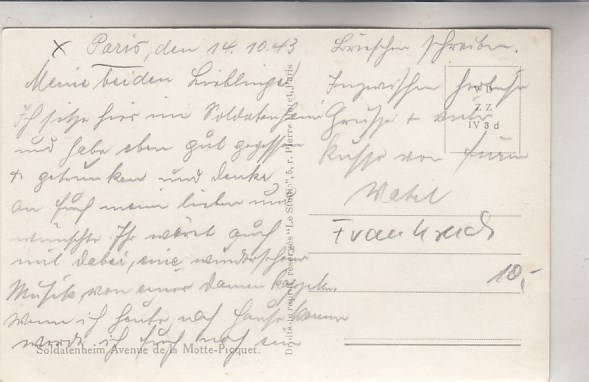 x Paris, den 14.10.43
Meine beiden Lieblinge!
Ich sitze hier im Soldatenheim
und habe eben gut gegessen
+ getrunken und denke
an Euch meine lieben und
wünschte Ihr wäret auch
mit dabei, eine wunderschöne
Musik, von einer Damen Kapelle.
Wenn ich heute nach Hause komme
werde ich Euch noch ein
Soldatenheim Avenue de la Motte-Picquet.
Droits de reproduct. réservés "Le Studio", 5, r. Pierre Paris
Briefchen schreiben.
Inzwischen herzliche
Grüsse + viele
Küsse von Eurem
Vatel
Frankreich
ZZ
IV 3 d
10,-